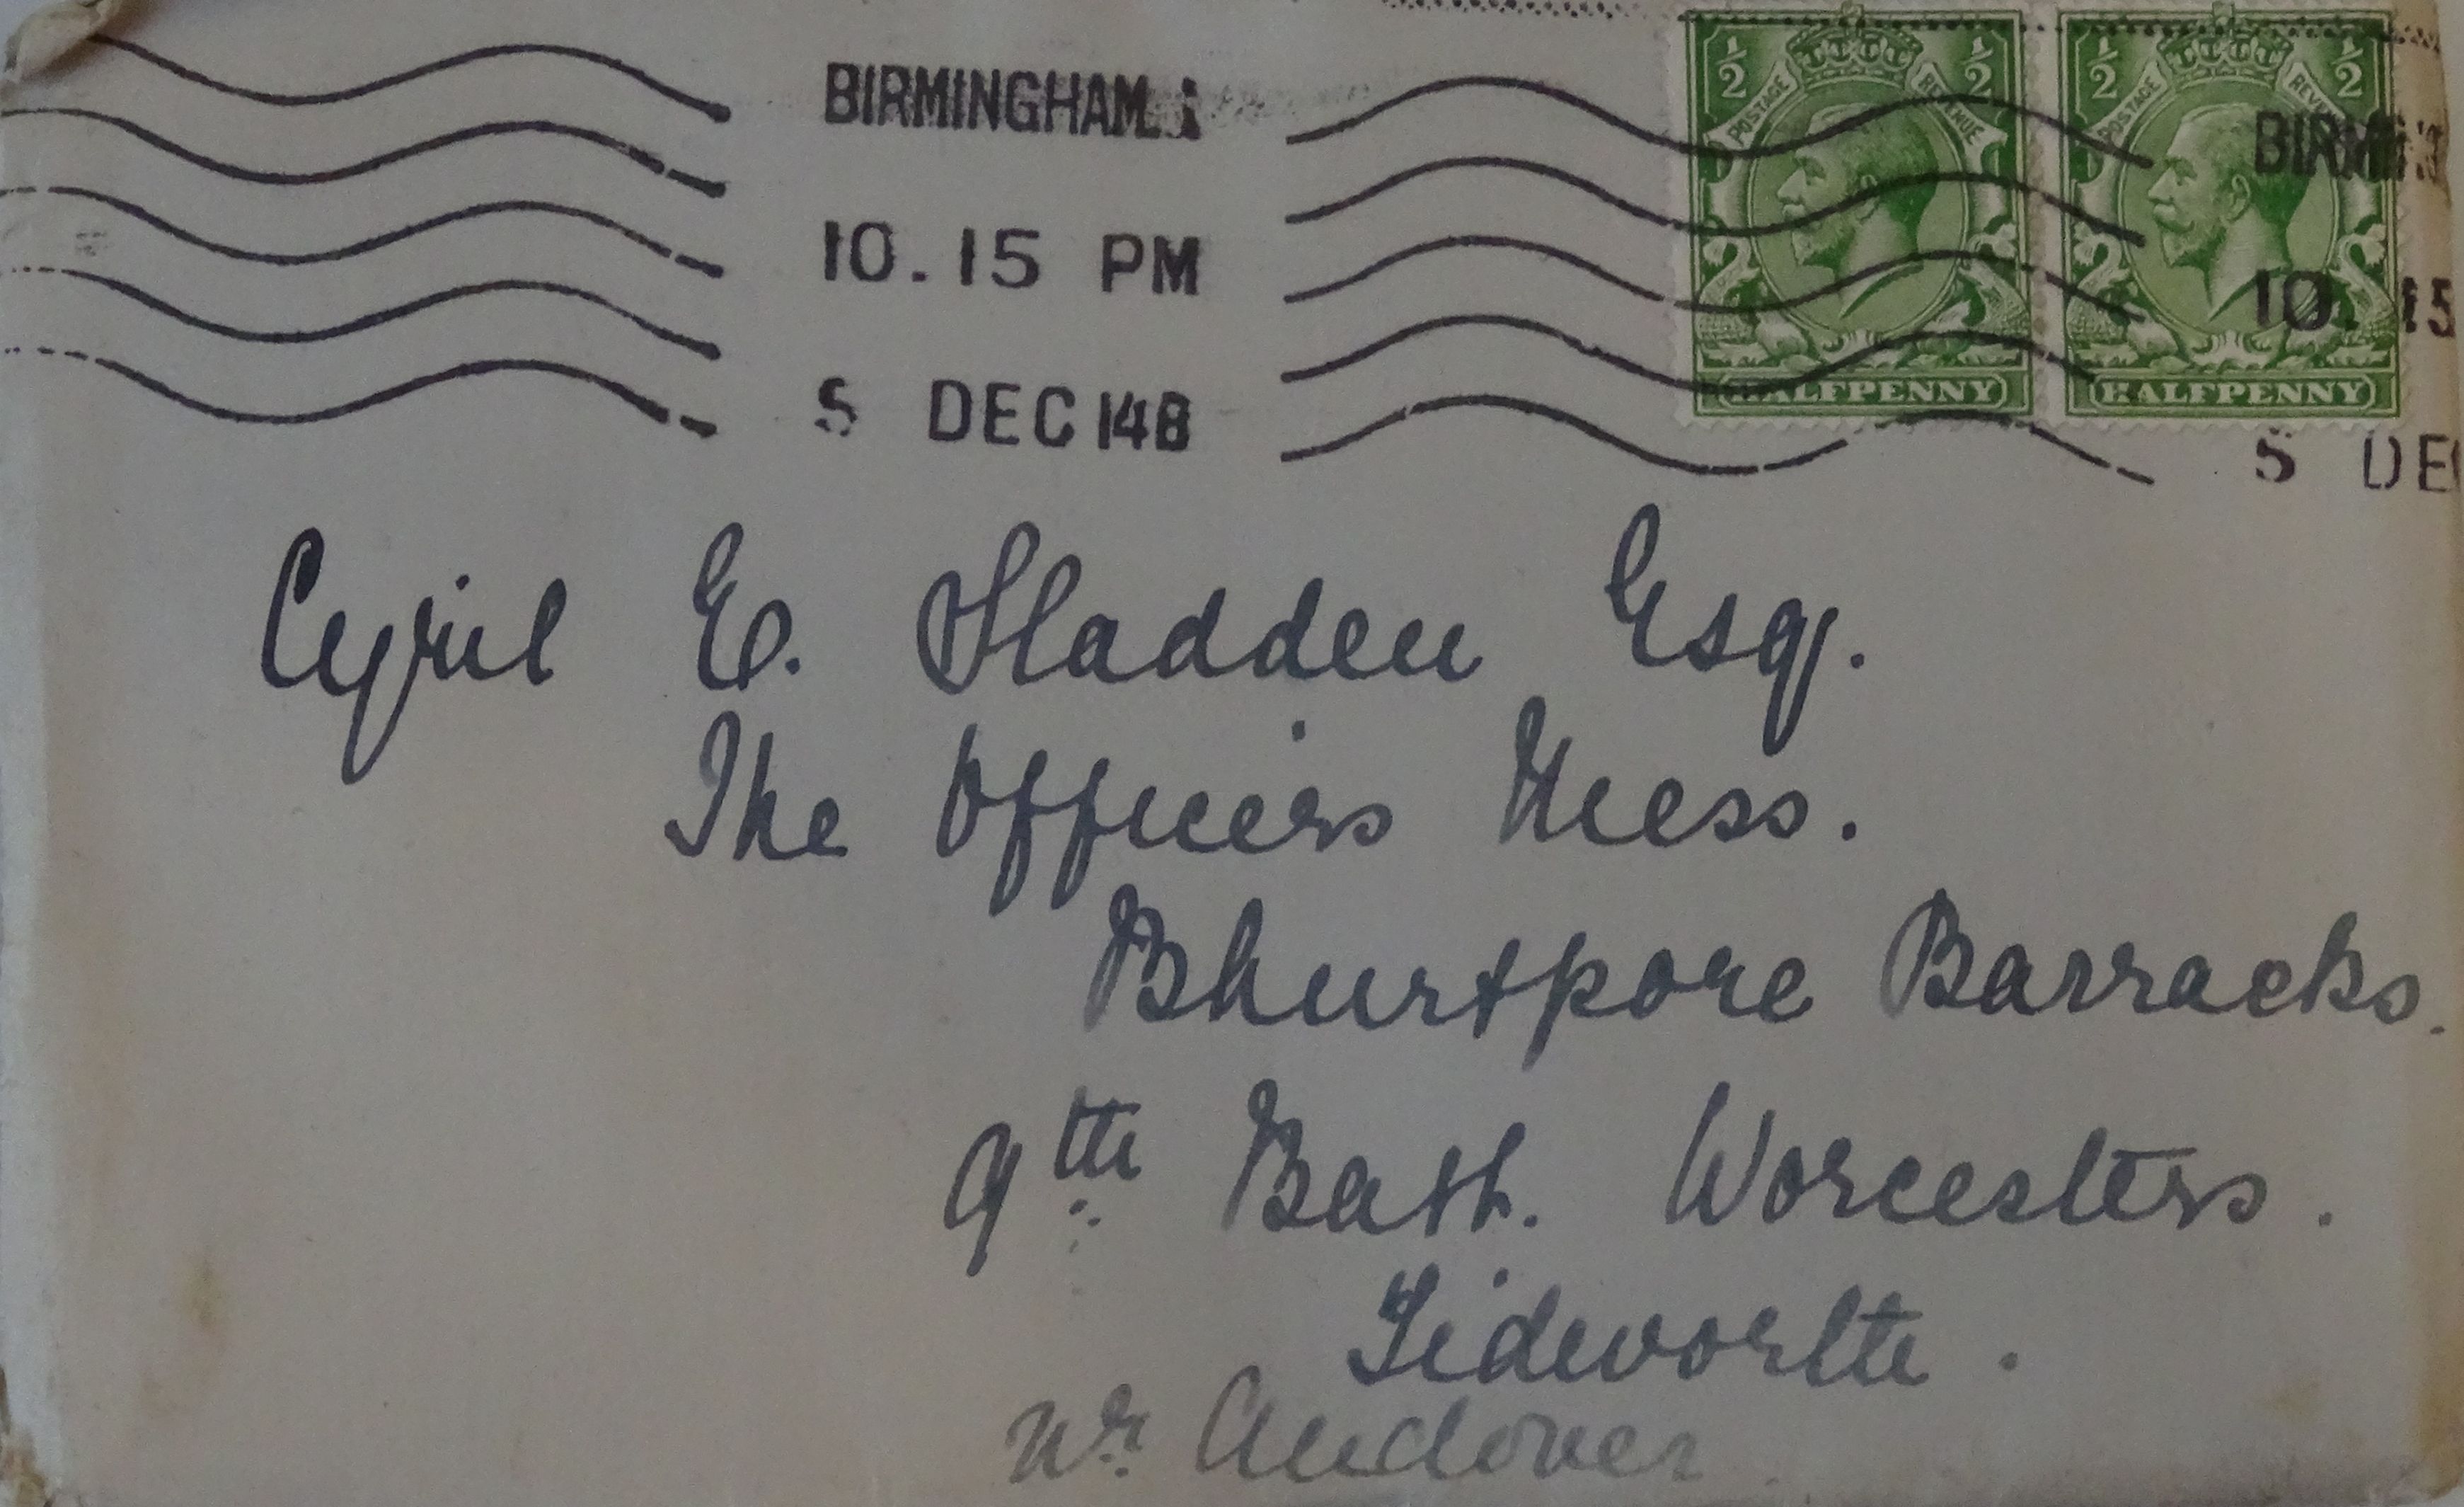 BIRMINGHAM.1
10.15 PM
5 DEC 14 B
1/2 POSTAGE REVENUE 1/2
HALFPENNY
1/2 POSTAGE REVENUE 1/2
HALFPENNY
BIRMIN
10.15
5 DEC
Cyril E. Sladden Esq.
The Officers Mess.
Bhurtpore Barracks.
9th Batt. Worcesters.
Tidworth.
Nr. Andover